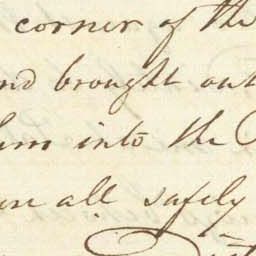 corner of the
nd brought out
into the
all safely